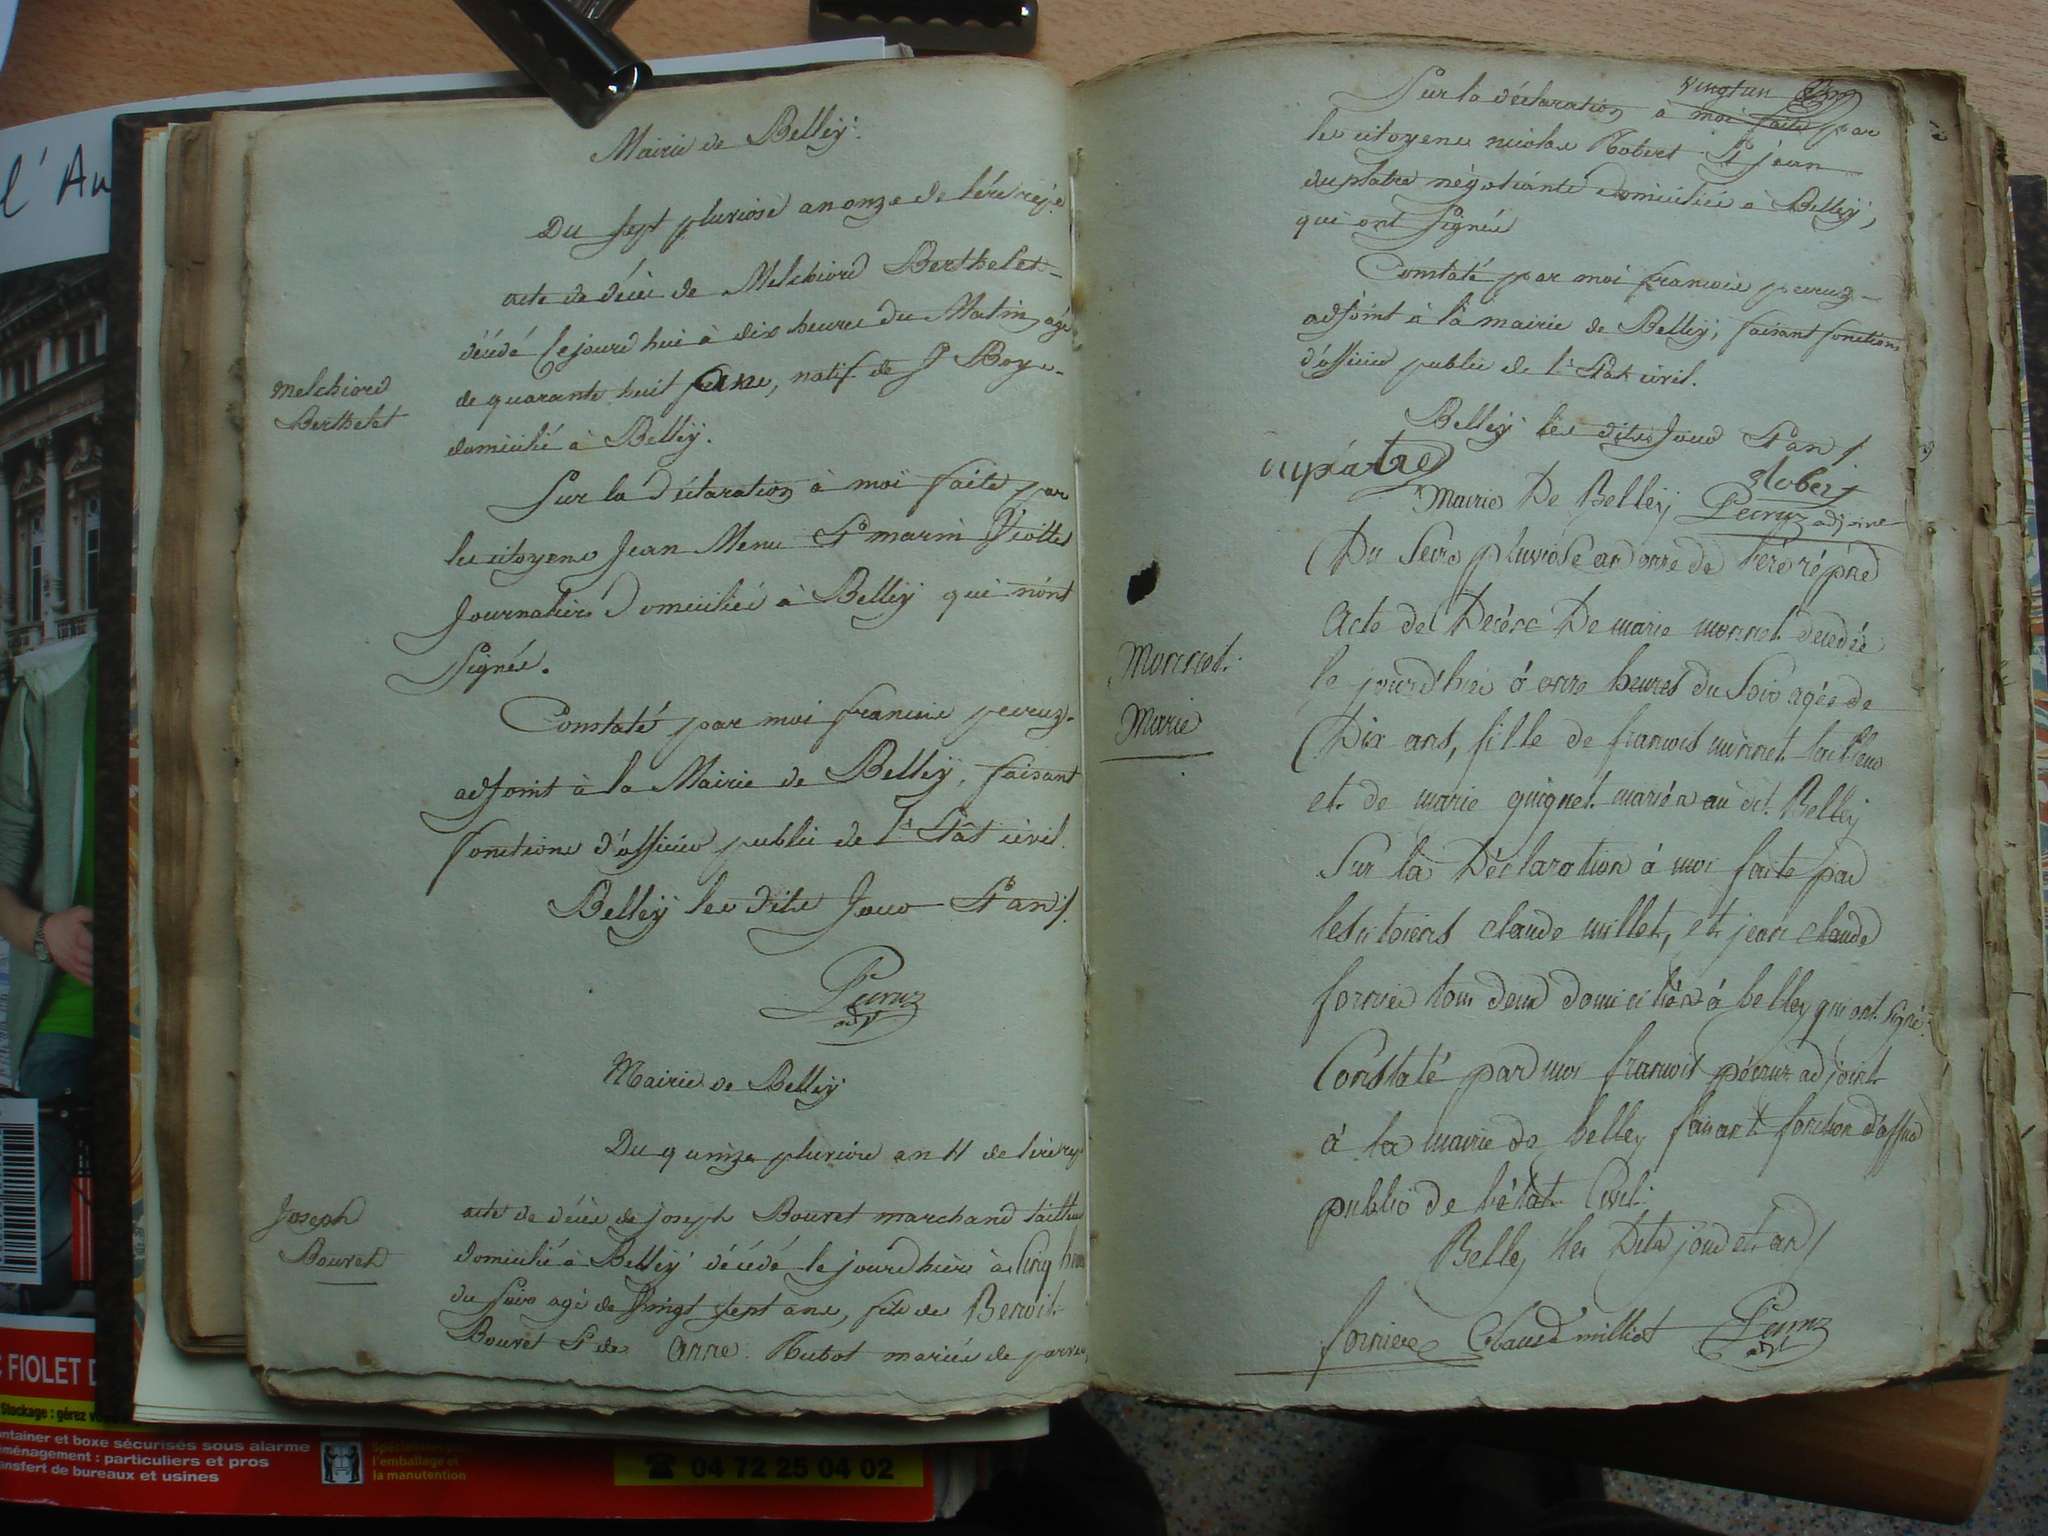 Mairie de Belleÿ.
Du sept pluviose an onze de l'ére rép.e
acte de décès de Melchiord Berthelet
décédé cejourd'hui à dix heures du Matin agé
de quarante huit ans, natif de St Boys
domicilié à Belleÿ.
Sur la déclaration à moi faite par
les citoyens Jean Menu Et marin
Journaliers Domiciliés à Belleÿ qui n'ont
Signés.
Constaté par moi francois peruz
adjoint à la Mairie de Belleÿ, faisant
fonctions d'officier public de l'Etat civil.
Belleÿ les dits Jour Et an
Peruz
adjt
Mairie de Belleÿ
Du quinze pluviose an 11 de l'ére rép
acte de décès de joseph Bouvet marchand tailleur
domicilié à Belleÿ décédé le jourd'hièr à cinq heures
du soir agé de vingt sept ans, fils de Benoit
Bouvet Et de Anne Rubot mariés de
Melchiord
Berthelet
Joseph
Bouvet
vingtun
Sur la déclaration à moi faite par
les citoyens nicolas Robert Et jean
duplatre négotiants Domiciliés à Belleÿ,
qui ont Signés
Constaté par moi francois peruz
adjoint à la mairie de Belleÿ, faisant fonctions
d'officier public de l'Etat civil.
Belleÿ les dits Jour Et an
duplatre Robert
Mairie De Belleÿ Peruz adjoint
Du Seize pluviose an onze de l'ére répne
Acte de Décès De marie monnet decedée
le jourd'hier à onze heures du Soir agée de
Dix ans, fille de francois monnet tailleur
et de marie guignet mariés au dit Belleÿ
Sur la Déclaration à moi faite par
les citoiens claude millet, et jean claude
fornier tous deux domiciliés à belley qui ont signé
Constaté par moi francois péruz adjoint
à la mairie de belley faisant fonction d'officier
public de l'état Civil.
Belley les Dits jour et an
forniere Claude milliet Peruz
adjt
Monnet
Marie
l'Au
C FIOLET D
Stockage : gérez v
ontainer et boxe sécurisés sous alarme
éménagement : particuliers et pros
ansfert de bureaux et usines
l'emballage et
la manutention
☎ 04 72 25 04 02